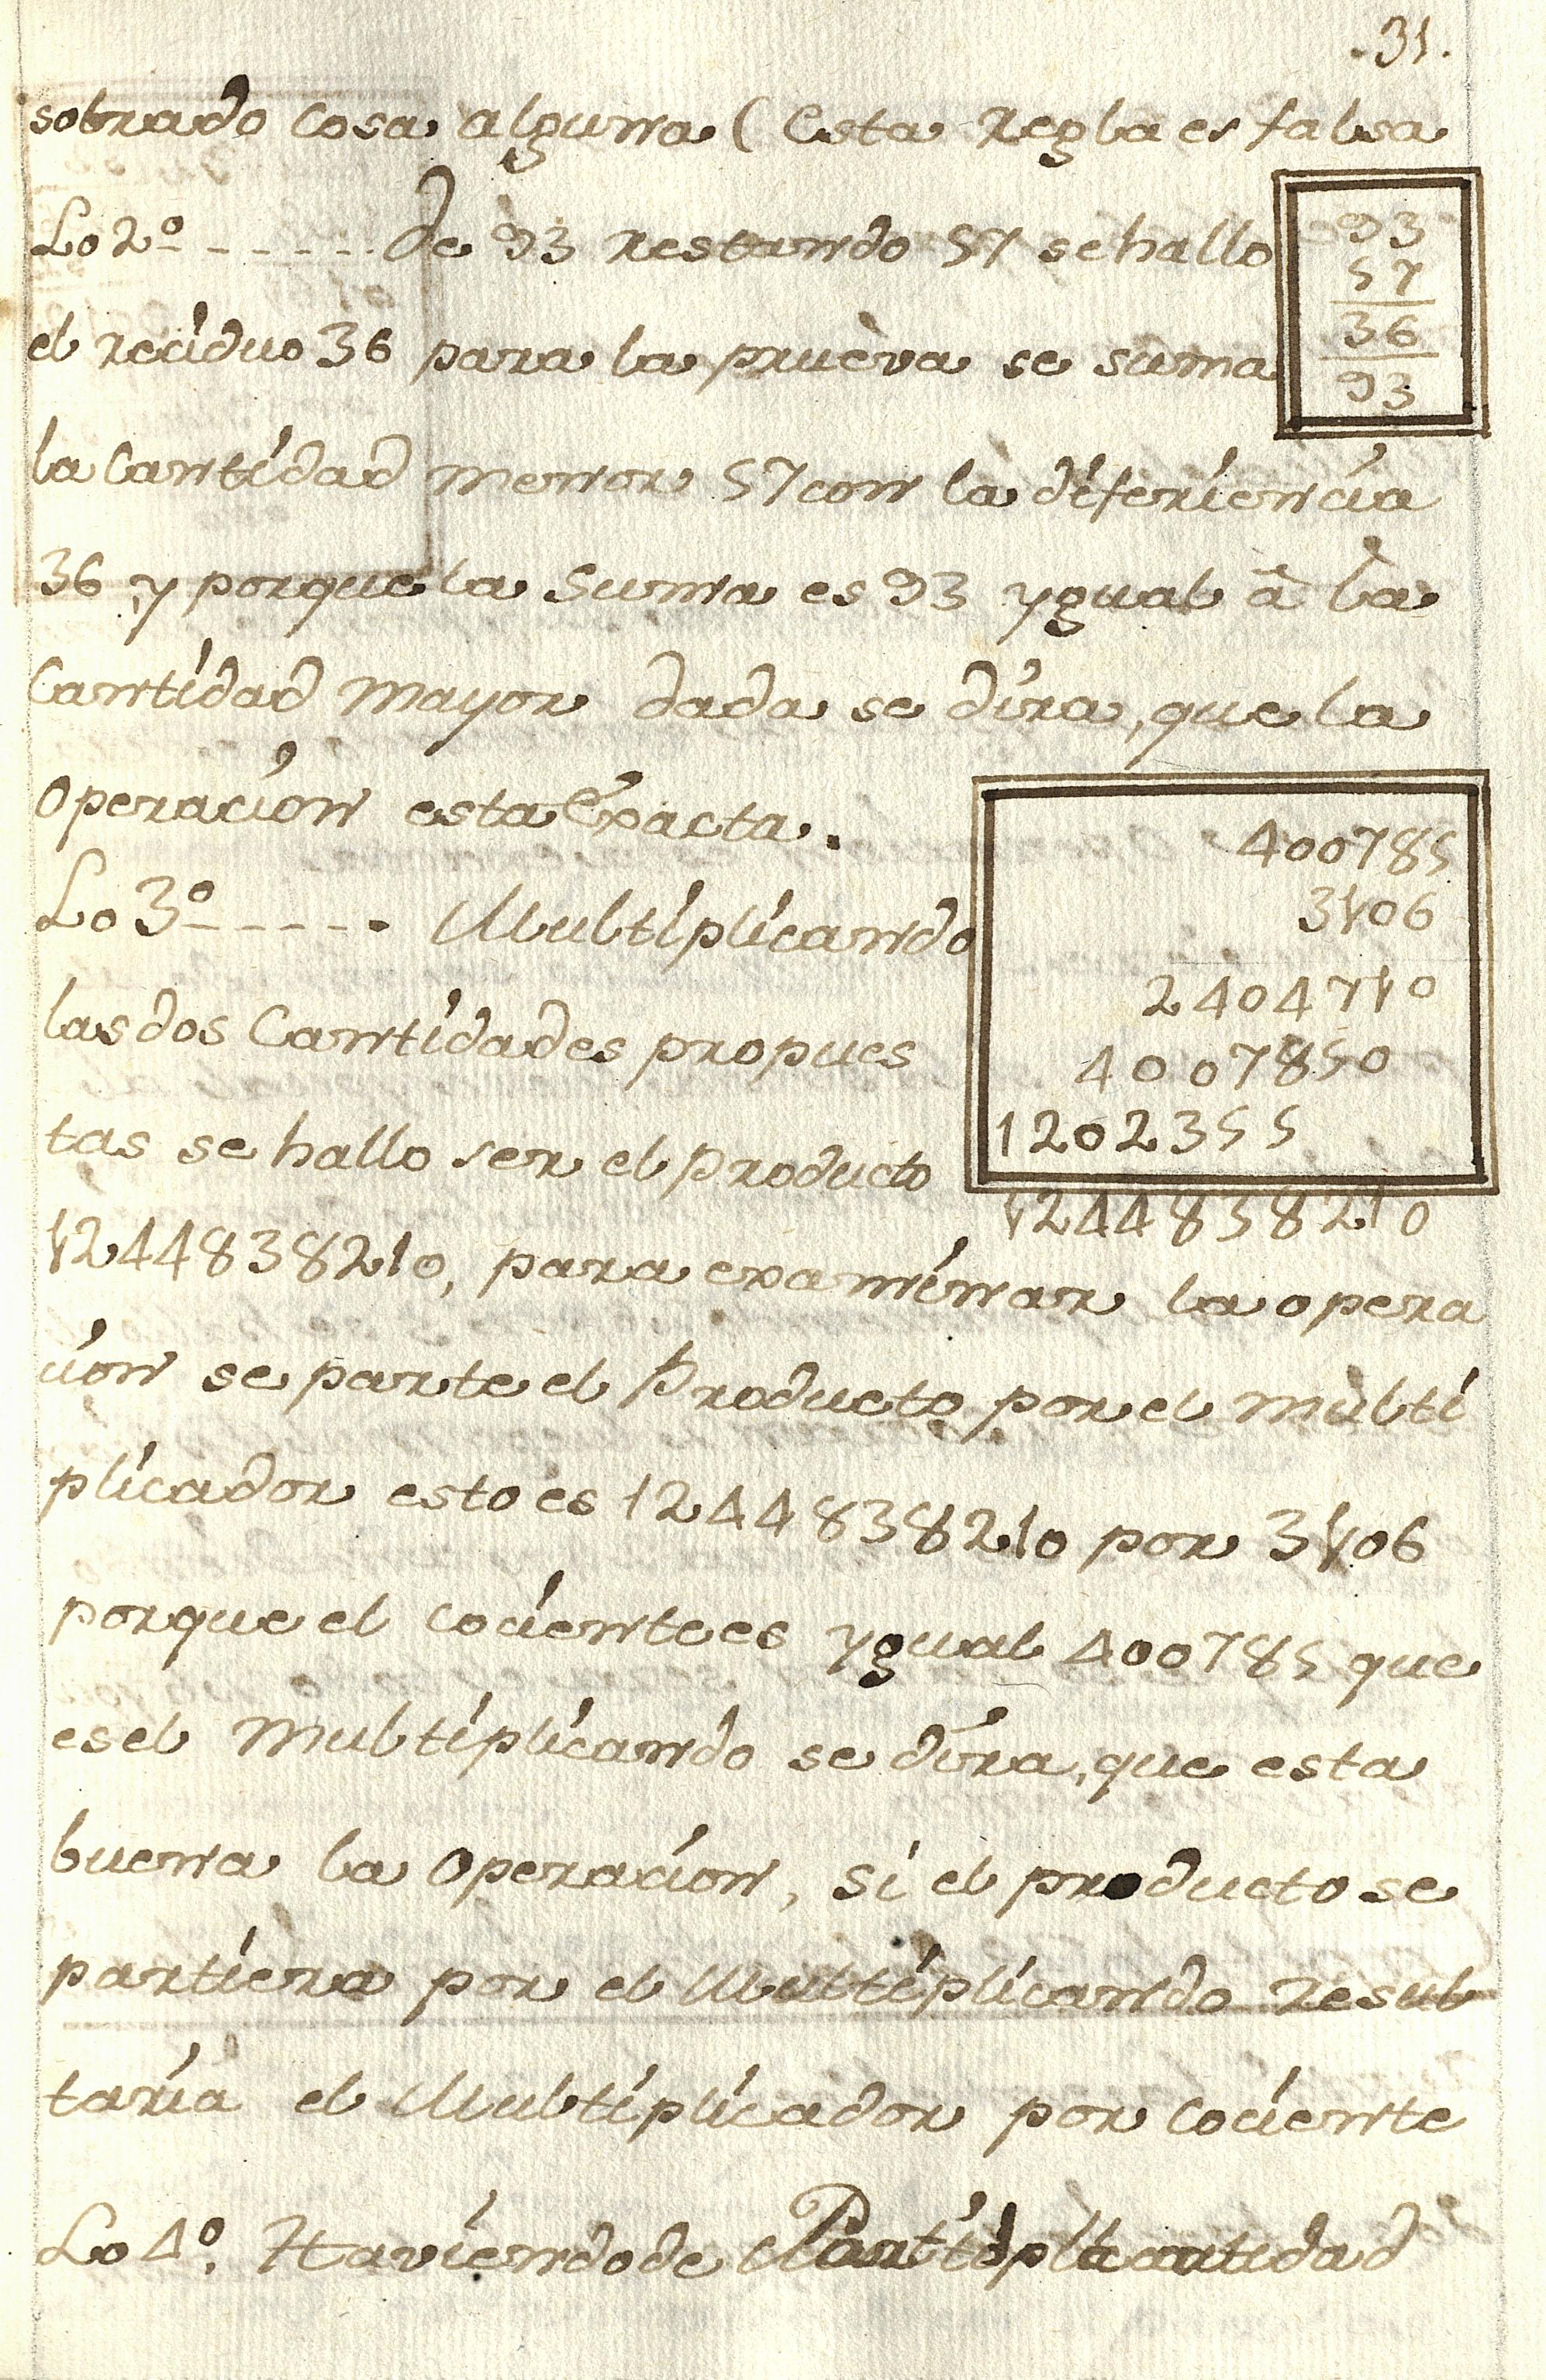 .31.
sobrado cosa alguna (Esta Regla es falsa
Lo 2º ----- De 93 Restando 57 se hallo
93
57
36
93
el reciduo 36 para la pruèva se suma
la Cantidad menor 57 con la diferiencia
36 y porque la Suma es 93 ygual â la
Cantidad Mayor dada se dira, que la
Operacion esta Exacta.
Lo 3º ----- Multiplicando
las dos Cantidades propues
tas se hallo ser el producto
400785
3106
2404710
4007850
1202355
1244838210
1244838210, para examinar la opera
cion se parte el Producto por el multi
plicador esto es 1244838210 por 3106
porque el cociente es ygual 400785 que
es el Multiplicando se dira, que esta
buena la Operacion, si el producto se
partiera por el Multiplicando resul
taria el Multiplicador por cociente
Lo 4º. Haviendo de Partir la cantidad